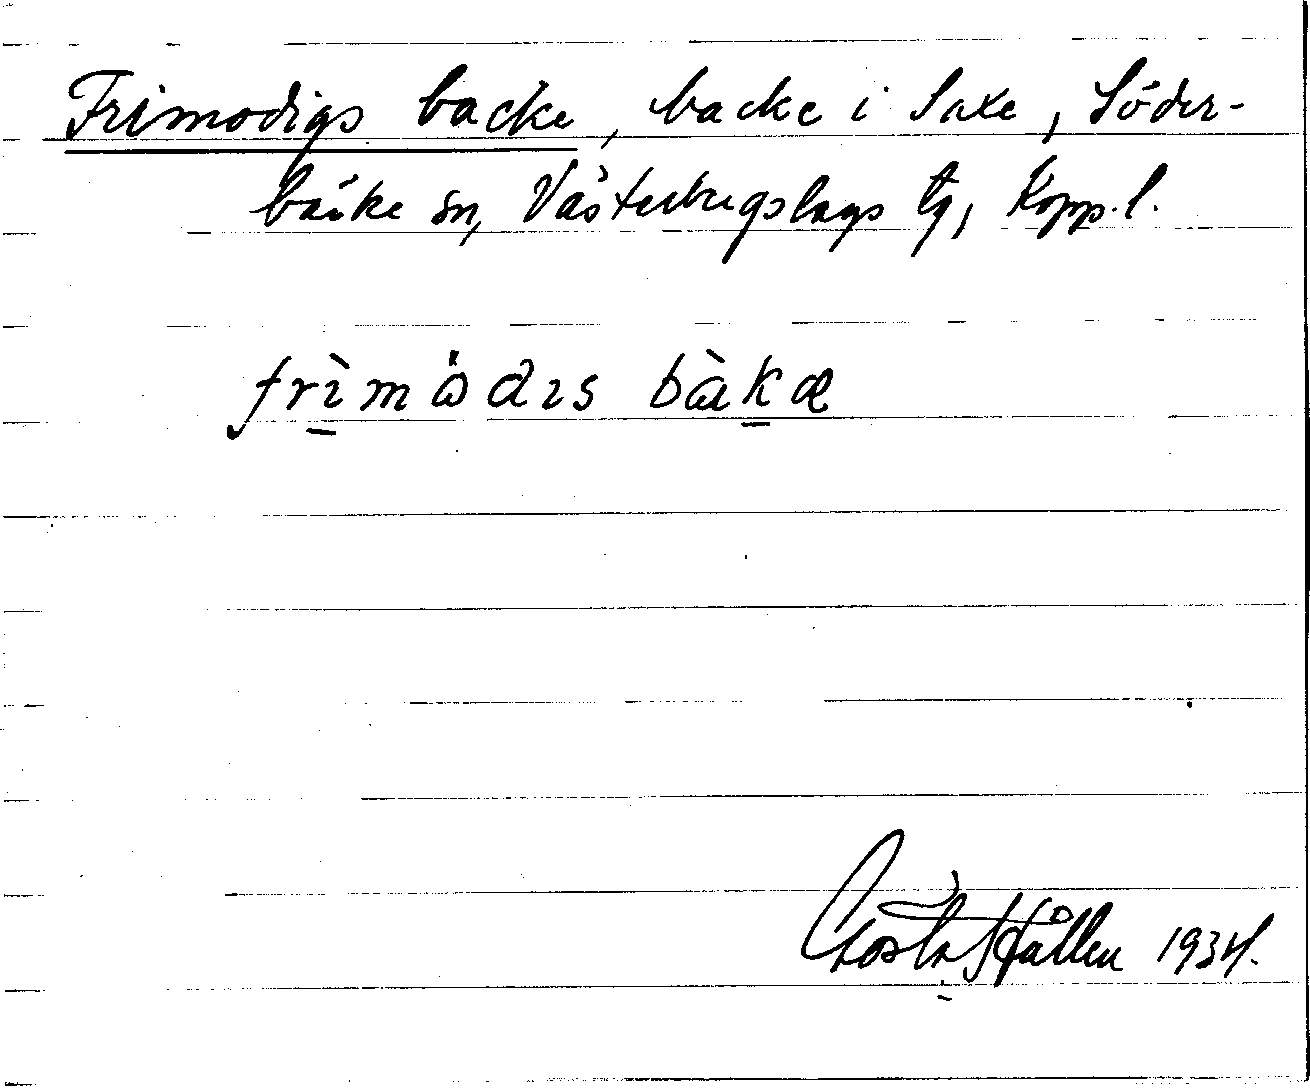 Frimodigs backe, backe i Saxe, Söder-
bärke sn, Västerbergslags tg, Kopp. l.
frìmȯdıs bàkæ
Gösta Hållen 1934.